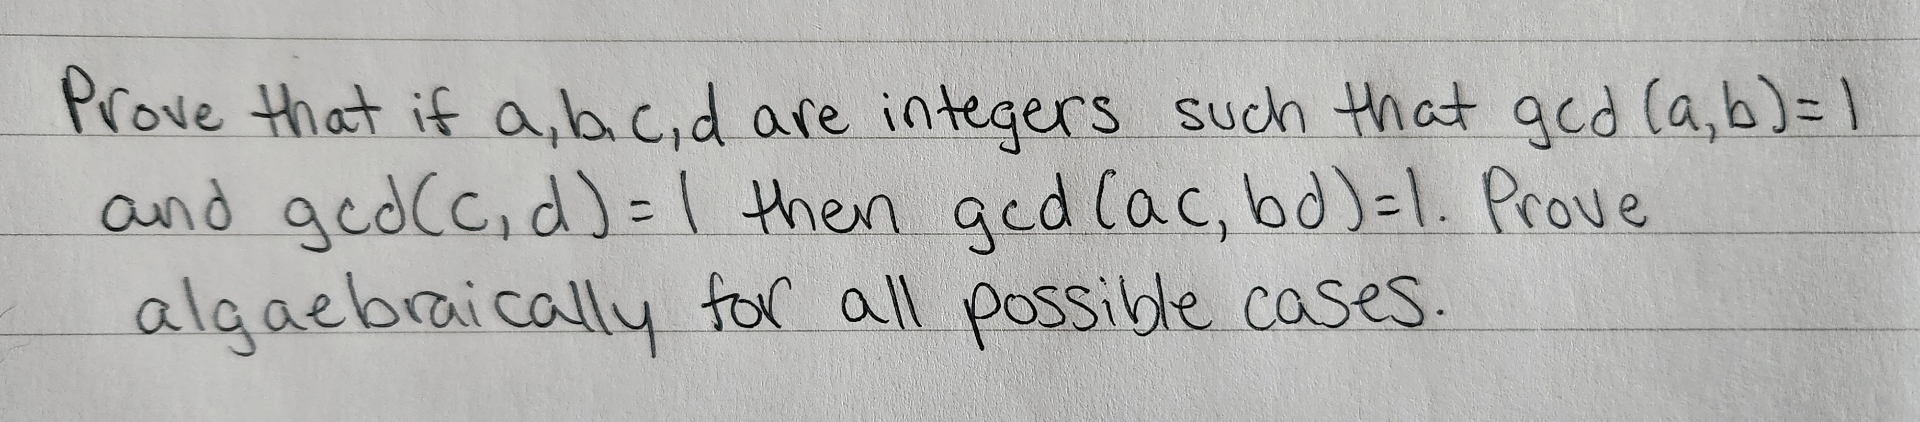 Prove that if a,b,c,d are integers such that gcd(a,b)=1
and gcd(c,d)=1 then gcd(ac,bd)=1. Prove
algaebraically for all possible cases.